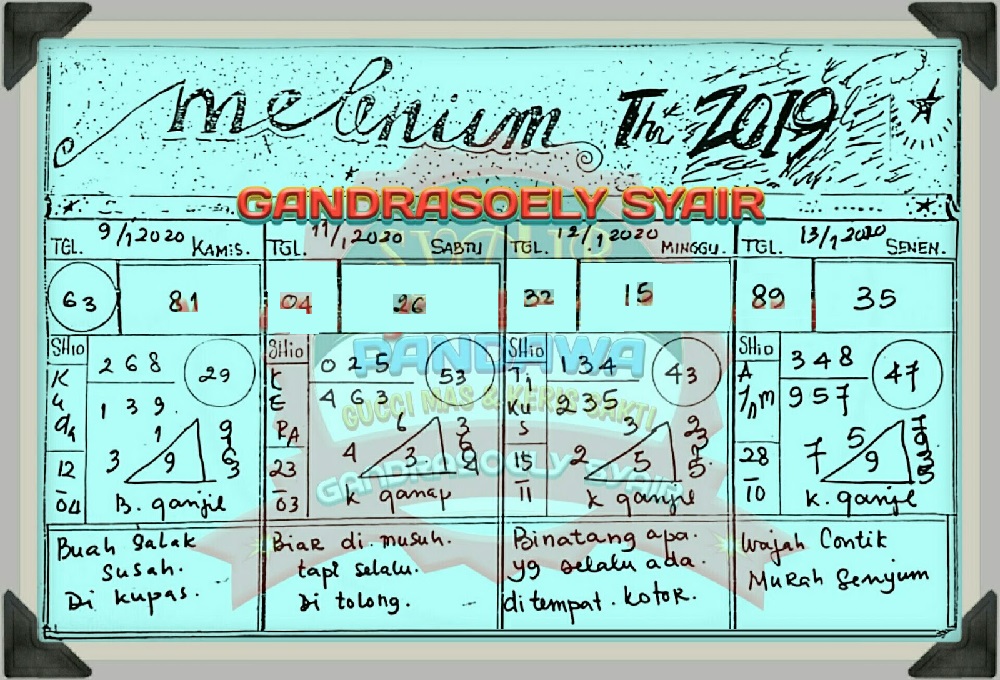 melenium Thn 2019
GANDRASOELY SYAIR
SYAIR
TGL. 9/1 2020 KAMIS.
63 81
SHIO
K
u
da
12
04
268
139
29
1
3 9
9
6
3
B. ganjil
Buah Salak
Susah.
Di kupas.
TGL. 11/1 2020 SABTU
04 26
SHIO
K
E
RA
23
03
025
463
53
6
4 3
3
6
4
K ganap
Biar di. musuh.
tapi selalu.
Di tolong.
TGL. 12/1 2020 MINGGU.
32 15
SHIO
Ti
Ku
S
15
11
134
235
43
3
2 5
2
3
5.
K ganjil
Binatang apa.
yg selalu ada.
ditempat. kotor.
TGL. 13/1 2020 SENEN.
89 35
SHIO
A
28
10
348
957
47
5
7 9
K. ganjil
Wajah Contik
Murah Senyum
PANDAWA
GUCCI MAS & KERIS SAKTI
GANDRASOELY SYAIR